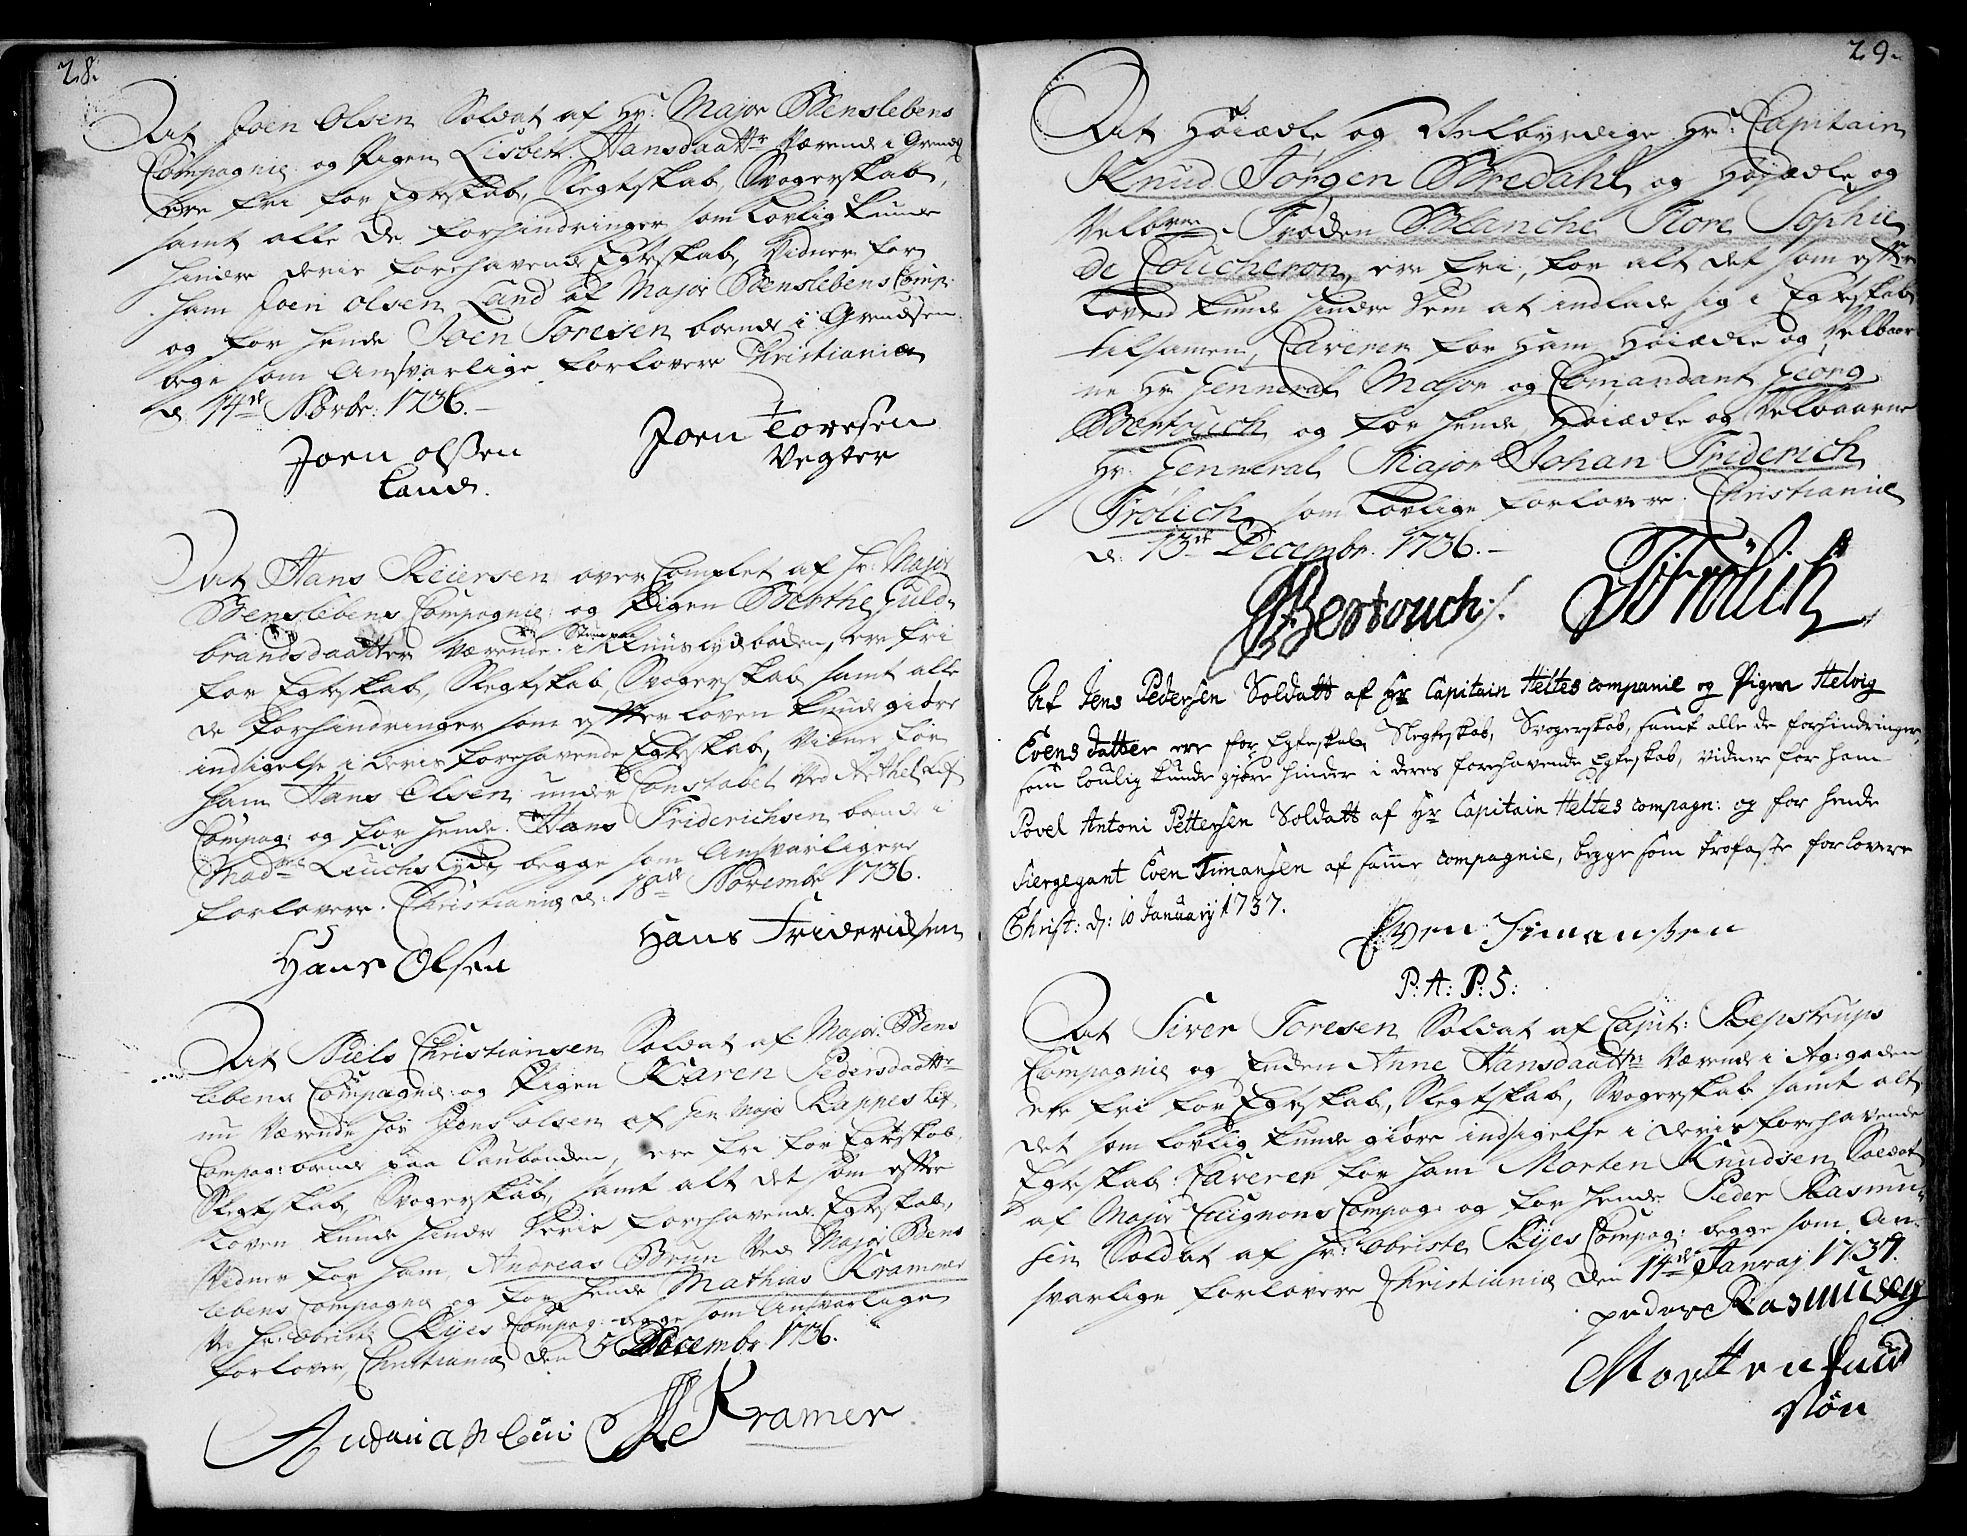 28.
At Joen Olsen Soldat af Hr: Major Benslebens
Compagnie og Pigen Lisbet Hansdaattr Værende i Grendsen
ere fri for Egteskab, Slegtskab, Svogerskab,
samt alle de forhindringer som lovlig kunde
hindre deris forehavende Egteskab, Vidner for
ham Joen Olsen Land af Major Benslebens Comp:
og for hende Joen Toresen boende i Grendsen
bege som Ansvarlige forlovere Christiania
d: 14de Novbr: 1736.
Joen olßen
Land.
Joen Toresen
Vegter
At Hans Reiersen over Complet af Hr: Major
Benslebens Compagnie: og Pigen Berthe Guld-
brandsdaatter Værende i ere fri
for Egteskab, Slegtskab, Svogerskab samt alle
de forhindringer som efter loven kunde giøre
indsigelse i deris forehavende Egteskab, Vidner for
ham Hans Olsen under Constabel ved
Compag: og for hende Hans Friderichsen boende i
begge som Ansvarligere
forlovere. Christiania d: 18de Novembr 1736.
Hans Olsen
Hans Friderichsen
At Niels Christiansen Soldat af Major Bens
lebens Compagnie: og Pigen Karen Pedersdaattr
nu Værende hos Jens olsen af Gen Major Kappes Lif
Compag: boende paa ere fri for Egteskab,
Slegtskab, Svogerskab, samt alt det som efter
Loven kunde hindre deris forehavende Egteskab,
Vidner for ham Andreas Brun Ved Major Bens
lebens Compagnie og for hende Mathias Krammer
Ved Hr: obriste Rÿes Compag: begge som Ansvarlige
forlover, Christiania den 5 Decembr 1736.
Kramer
29.
At Høiædle og Velbyrdige Hr: Capitain
Knud Jørgen Bredahl og Høiædle og
Velbrne Frøden Blanche Flore Sophie
de Coucheron, ere fri, for alt det som efter
Loved kunde hindre dem at indlade sig i Egteskab
tilsamen, Caverer for ham Høiædle og Velbaar
ne Hr Genneral Major og Comandant Georg
Bertouch og for hende Høiædle og Velbaarne
Hr: Genneral Major Johan Friderich
Frølich som lovlige forlovere. Christiania
d: 13de Decembr. 1736.
Bertouch
Frölich
At Jens Pedersen Soldatt af Hr Capitain Heltes companie og Pigen Helvig
Evens datter ere for Egteskab, Slegteskab, Svogerskab, samt alle de forhindringer,
som loulig kunde gjøre hinder i deres forehavende Egteskab, vidner for ham
Povel Antoni Pettersen Soldatt af Hr Capitain Heltes compagn: og for hende
Siergegant Even Simansen af samme compagnie, begge som trofaste forlovere
Christ: d: 10 January 1737.
Even Simanßen
P: A: P: S:
At Siver Toresen Soldat af Capit: Repstrups
Compagnie og Enden Anne Hansdaattr Værende i Ag:gaden
ere fri for Egteskab, Slegtskab, Svogerskab samt alt
det som lovlig kunde giøre indsigelse i deris forehavende
Egteskab: Caverer for ham Morten Knudsen Soldat
af Major Compag: og for hende Peder Rasmu-
sen Soldat af Hr: obriste Rÿes Compag: begge som An-
svarlige forlovere Christiania den 14de Januarj 1737.
peder Rasmusen
Mortten Knud
søn